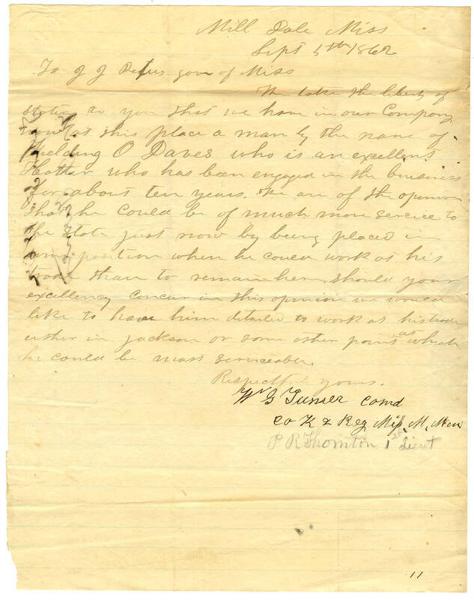 Mill Dale Miss
Sept 5th 1862
To J J Pettus. gov of Miss
We take the liberty of
stating to you that we have in our Company
now at this place a man by the name of
O Daves who is an excellent
Hatter who has been engaged in the business
for about ten years. We are of the opinion
that he could be of much more service to
the State just now by being placed in
position when he could work at his
trade than to remain here should your
excellency concur in this opinion we would
like to have him detailed to work at his trade
either in Jackson or some other point at which
he could be most serviceable.
Respectf yours.
W G Comd
Co K 2 Reg Miss M. Men
P R Thornton 1st Lieut
11